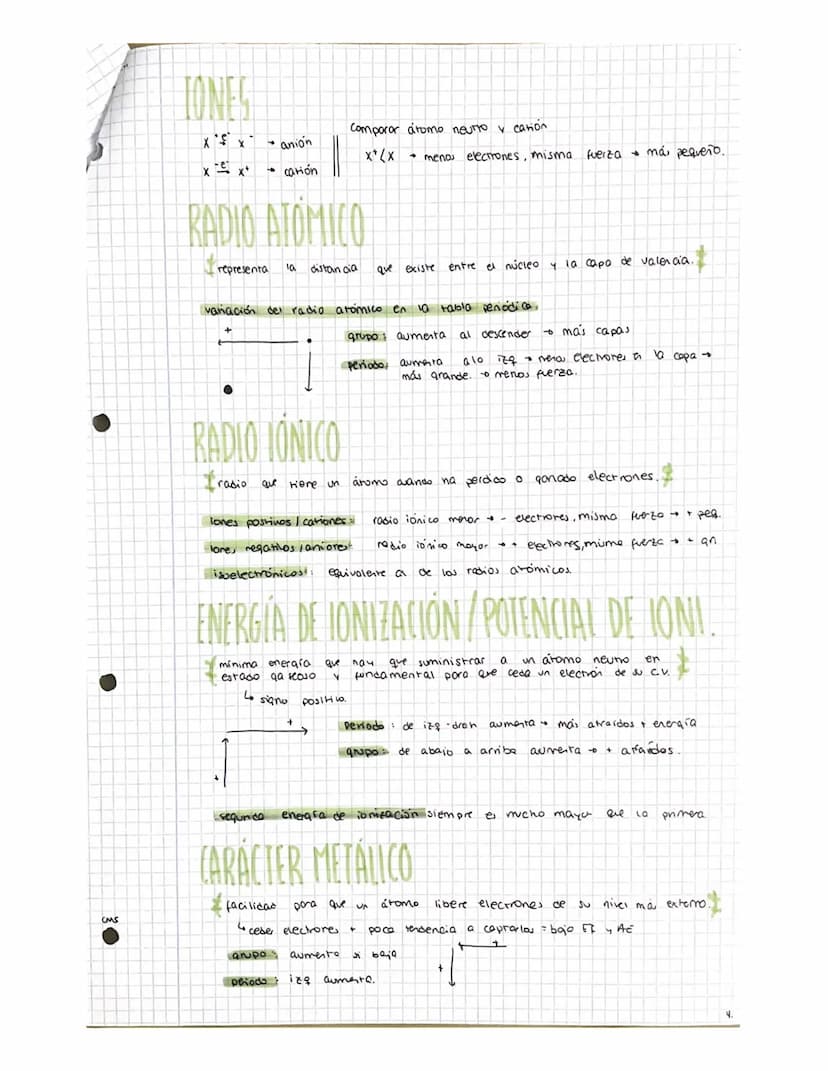 IONES
x +e⁻→ x⁻ → anión
x -e⁻→ x⁺ → catión
comparar átomo neutro y catión
x⁺ < x → menos electrones, misma fuerza → más pequeño.
RADIO ATÓMICO
representa la distancia que existe entre el núcleo y la capa de valencia.
variación del radio atómico en la tabla periódica.
+
grupo: aumenta al descender → más capas
periodo: aumenta a la izq → menos electrones en la capa →
más grande. → menos fuerza.
RADIO IÓNICO
radio que tiene un átomo cuando ha perdido o ganado electrones.
Iones positivos / cationes: radio iónico menor → - electrones, misma fuerza → + peq.
Iones negativos / aniones: radio iónico mayor → + electrones, misma fuerza → + gn
isoelectrónicos: equivalente a de los radios atómicos.
ENERGÍA DE IONIZACIÓN / POTENCIAL DE IONI.
mínima energía que hay que suministrar a un átomo neutro en
estado gaseoso y fundamental para que ceda un electrón de su C.V.
↳ signo positivo.
+
periodo: de izq - drch aumenta → más atraídos + energía
grupo: de abajo a arriba aumenta → + atraídos.
+
segunda energía de ionización siempre es mucho mayor que la primera
CARÁCTER METÁLICO
facilidad para que un átomo libere electrones de su nivel más externo.
CMS
↳ ceder electrones + poca tendencia a captarlos = bajo EI y AE
grupo: aumenta si baja
+
+
periodo: izq aumenta.
4.